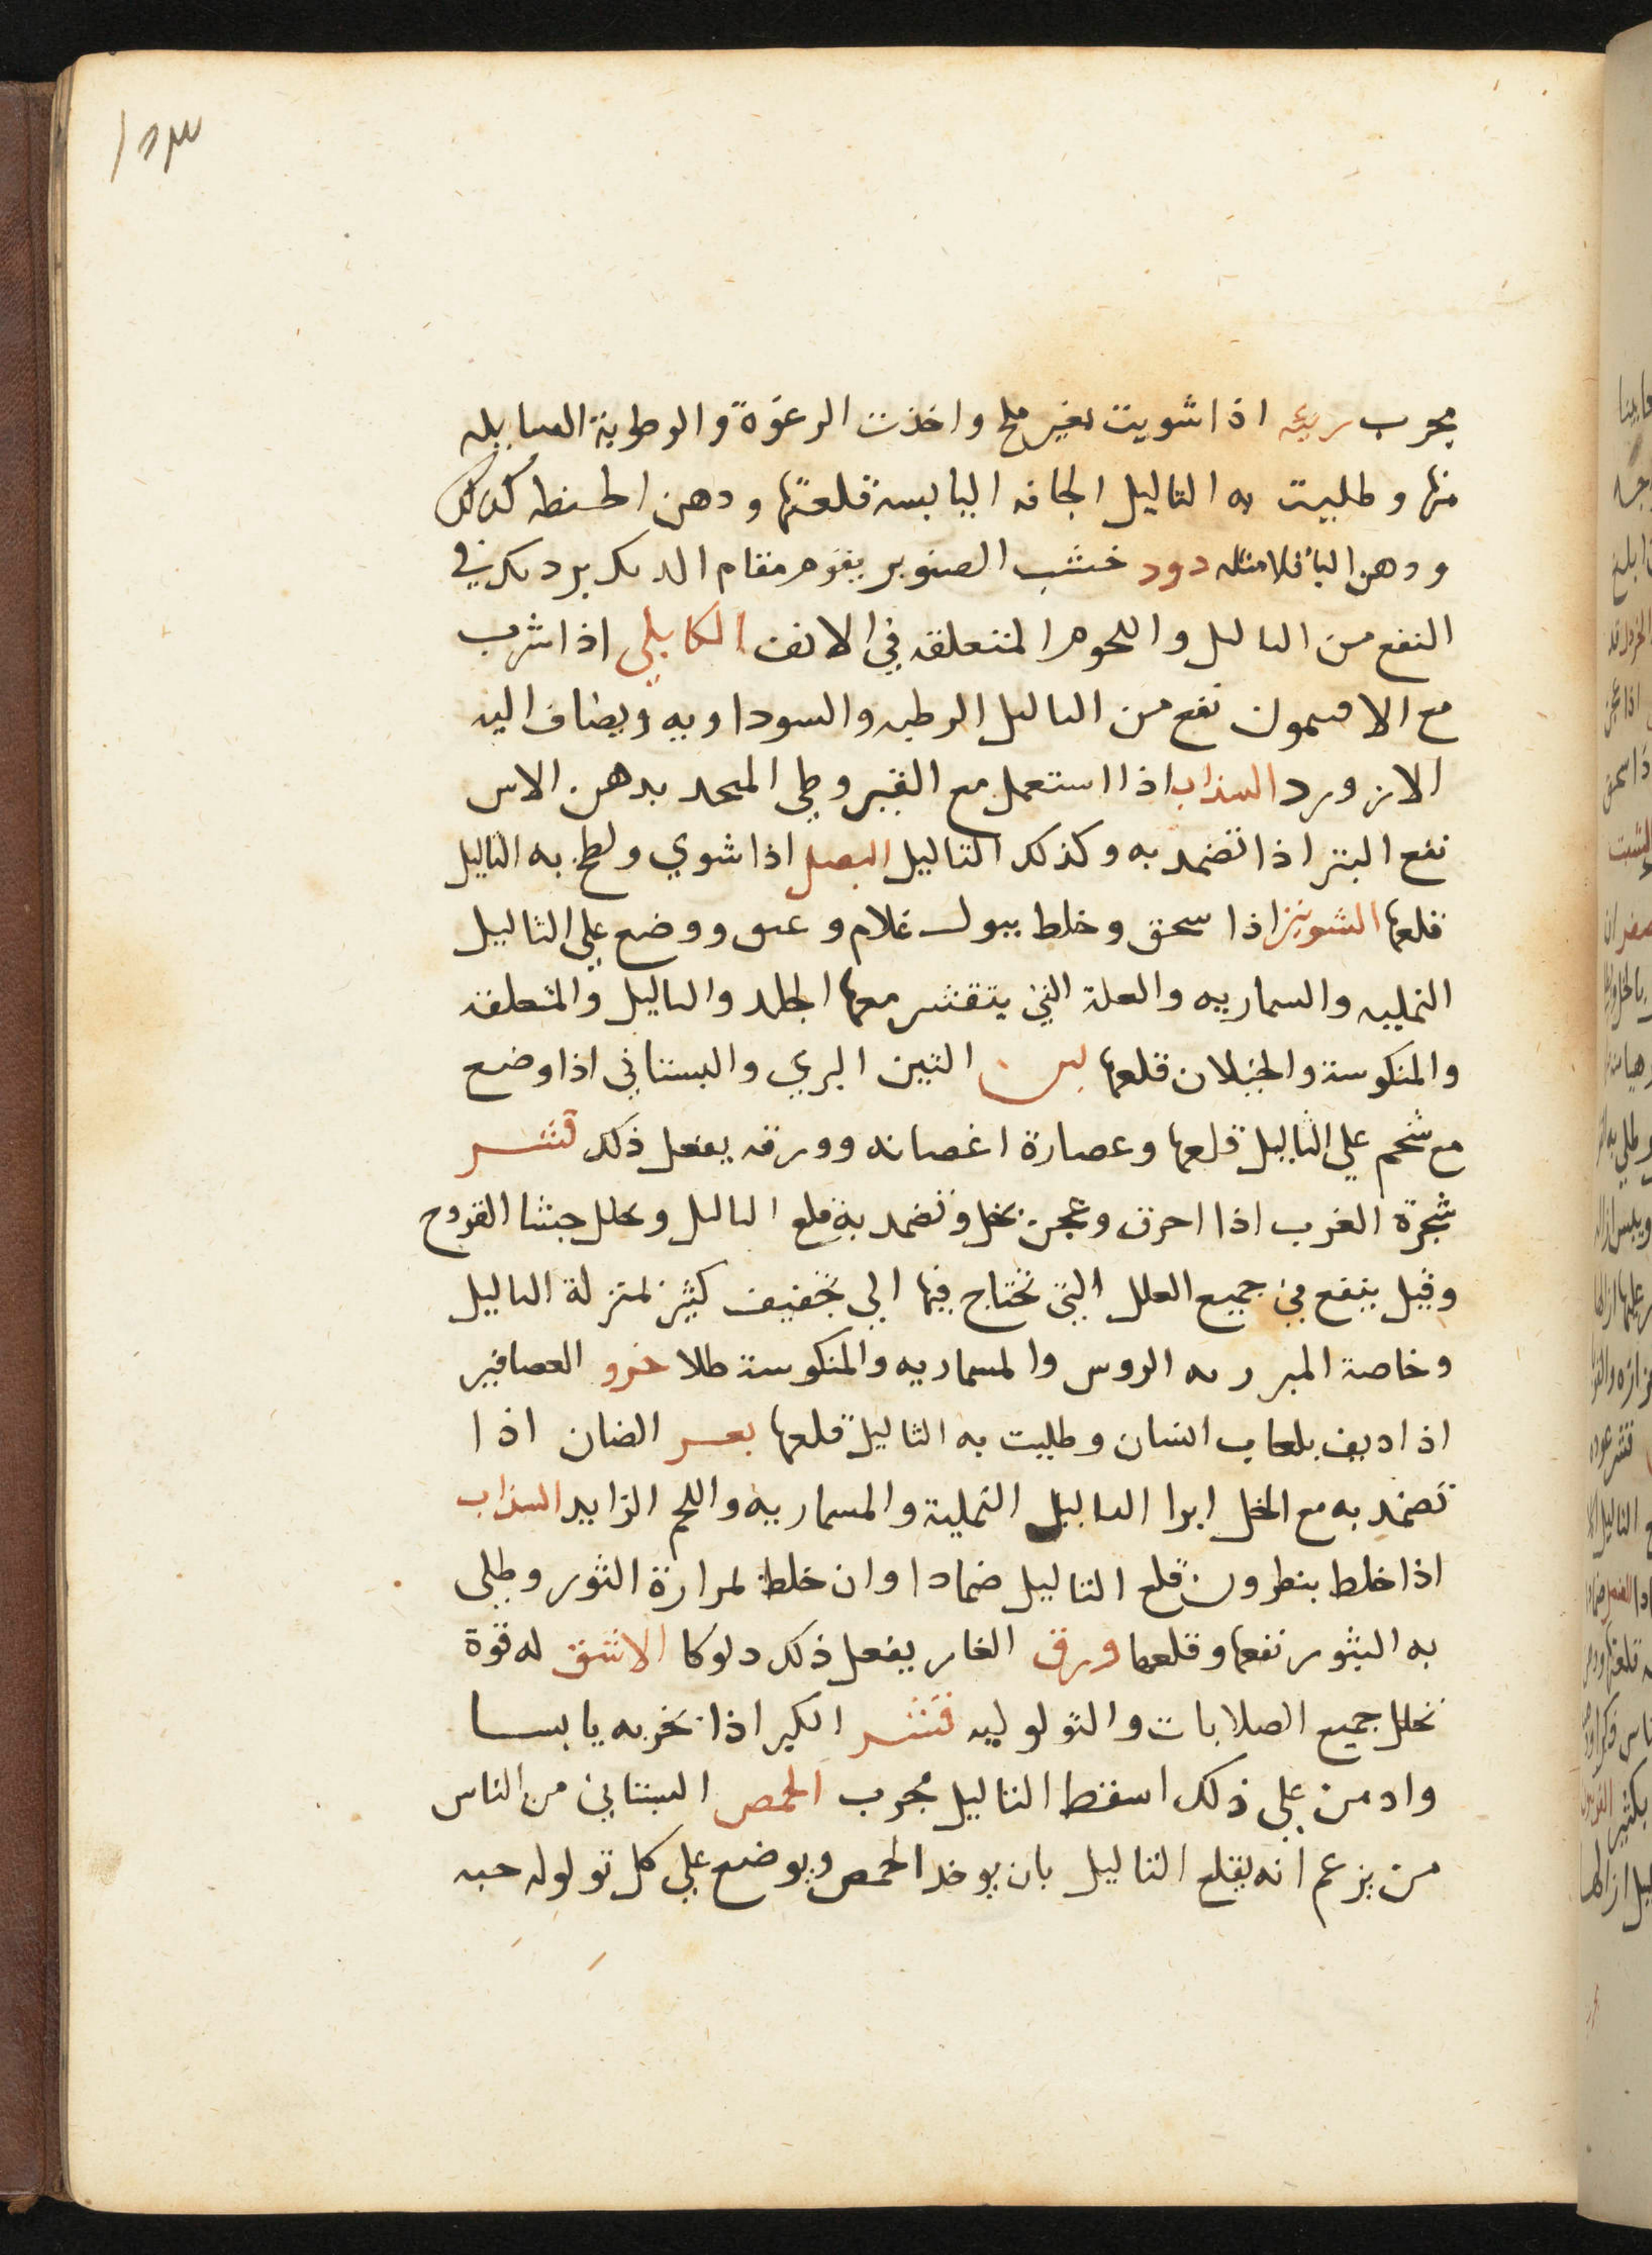 مجرب ريه اذا شويت بغير ملح واخذت الرغوة والرطوبة السايله
منها وطليت به التاليل الجافه اليابسه قلعتها ودهن الحنطه كذلك
ودهن الباقلا مثله دود خشب الصنوبر يقوم مقام الديك برديك في
النفع من الثاليل واللحوم المتعلقه في الانف الكابلي اذا شرب
مع الافتيمون نفع من الثاليل الرطبه والسوداويه ويضاف اليه
الازورد السذاب اذا استعمل مع القيروطي المتخذ بدهن الاس
نفع البثر اذا تضمد به وكذلك التاليل البصل اذا شوي ولطخ به الثاليل
قلعها الشونيز اذا سحق وخلط ببول غلام وعتق ووضع علي الثاليل
النمليه والسماريه والعلة التي يتقشر معها الجلد والثاليل والمتعلقه
والمنكوسة والخيلان قلعها لبن التين البري والبستاني اذا وضع
مع شحم علي الثاليل قلعها وعصارة اغصانه وورقه يفعل ذلك قشر
شجرة الغرب اذا احرق وعجن بخل وتضمد به قلع الثاليل وحلل جثا القروح
وقيل ينفع في جميع العلل التي تحتاج فيها الي تخفيف كثير بمنزلة الثاليل
وخاصة الروس والمسماريه والمنكوسة طلا خرو العصافير
اذا اديف بلعاب انسان وطليت به الثاليل قلعها بعر الضان اذا
تضمد به مع الخل ابرا الثاليل النملية والمسماريه واللحم الزايد السذاب
اذا خلط بنطرون قلع التاليل ضمادا وان خلط لمرارة الثور وطلي
به البثور نفعها وقلعها ورق الغار يفعل ذلك دلوكا الاشق له قوة
تحلل جميع الصلابات والتولوليه قشر الكبر اذا بخر به يابسا
وادمن علي ذلك اسقط التاليل مجرب الحمص البستاني من الناس
من يزعم انه يقلع التاليل بان يوخد الحمص ويوضع علي كل تولوله حبه